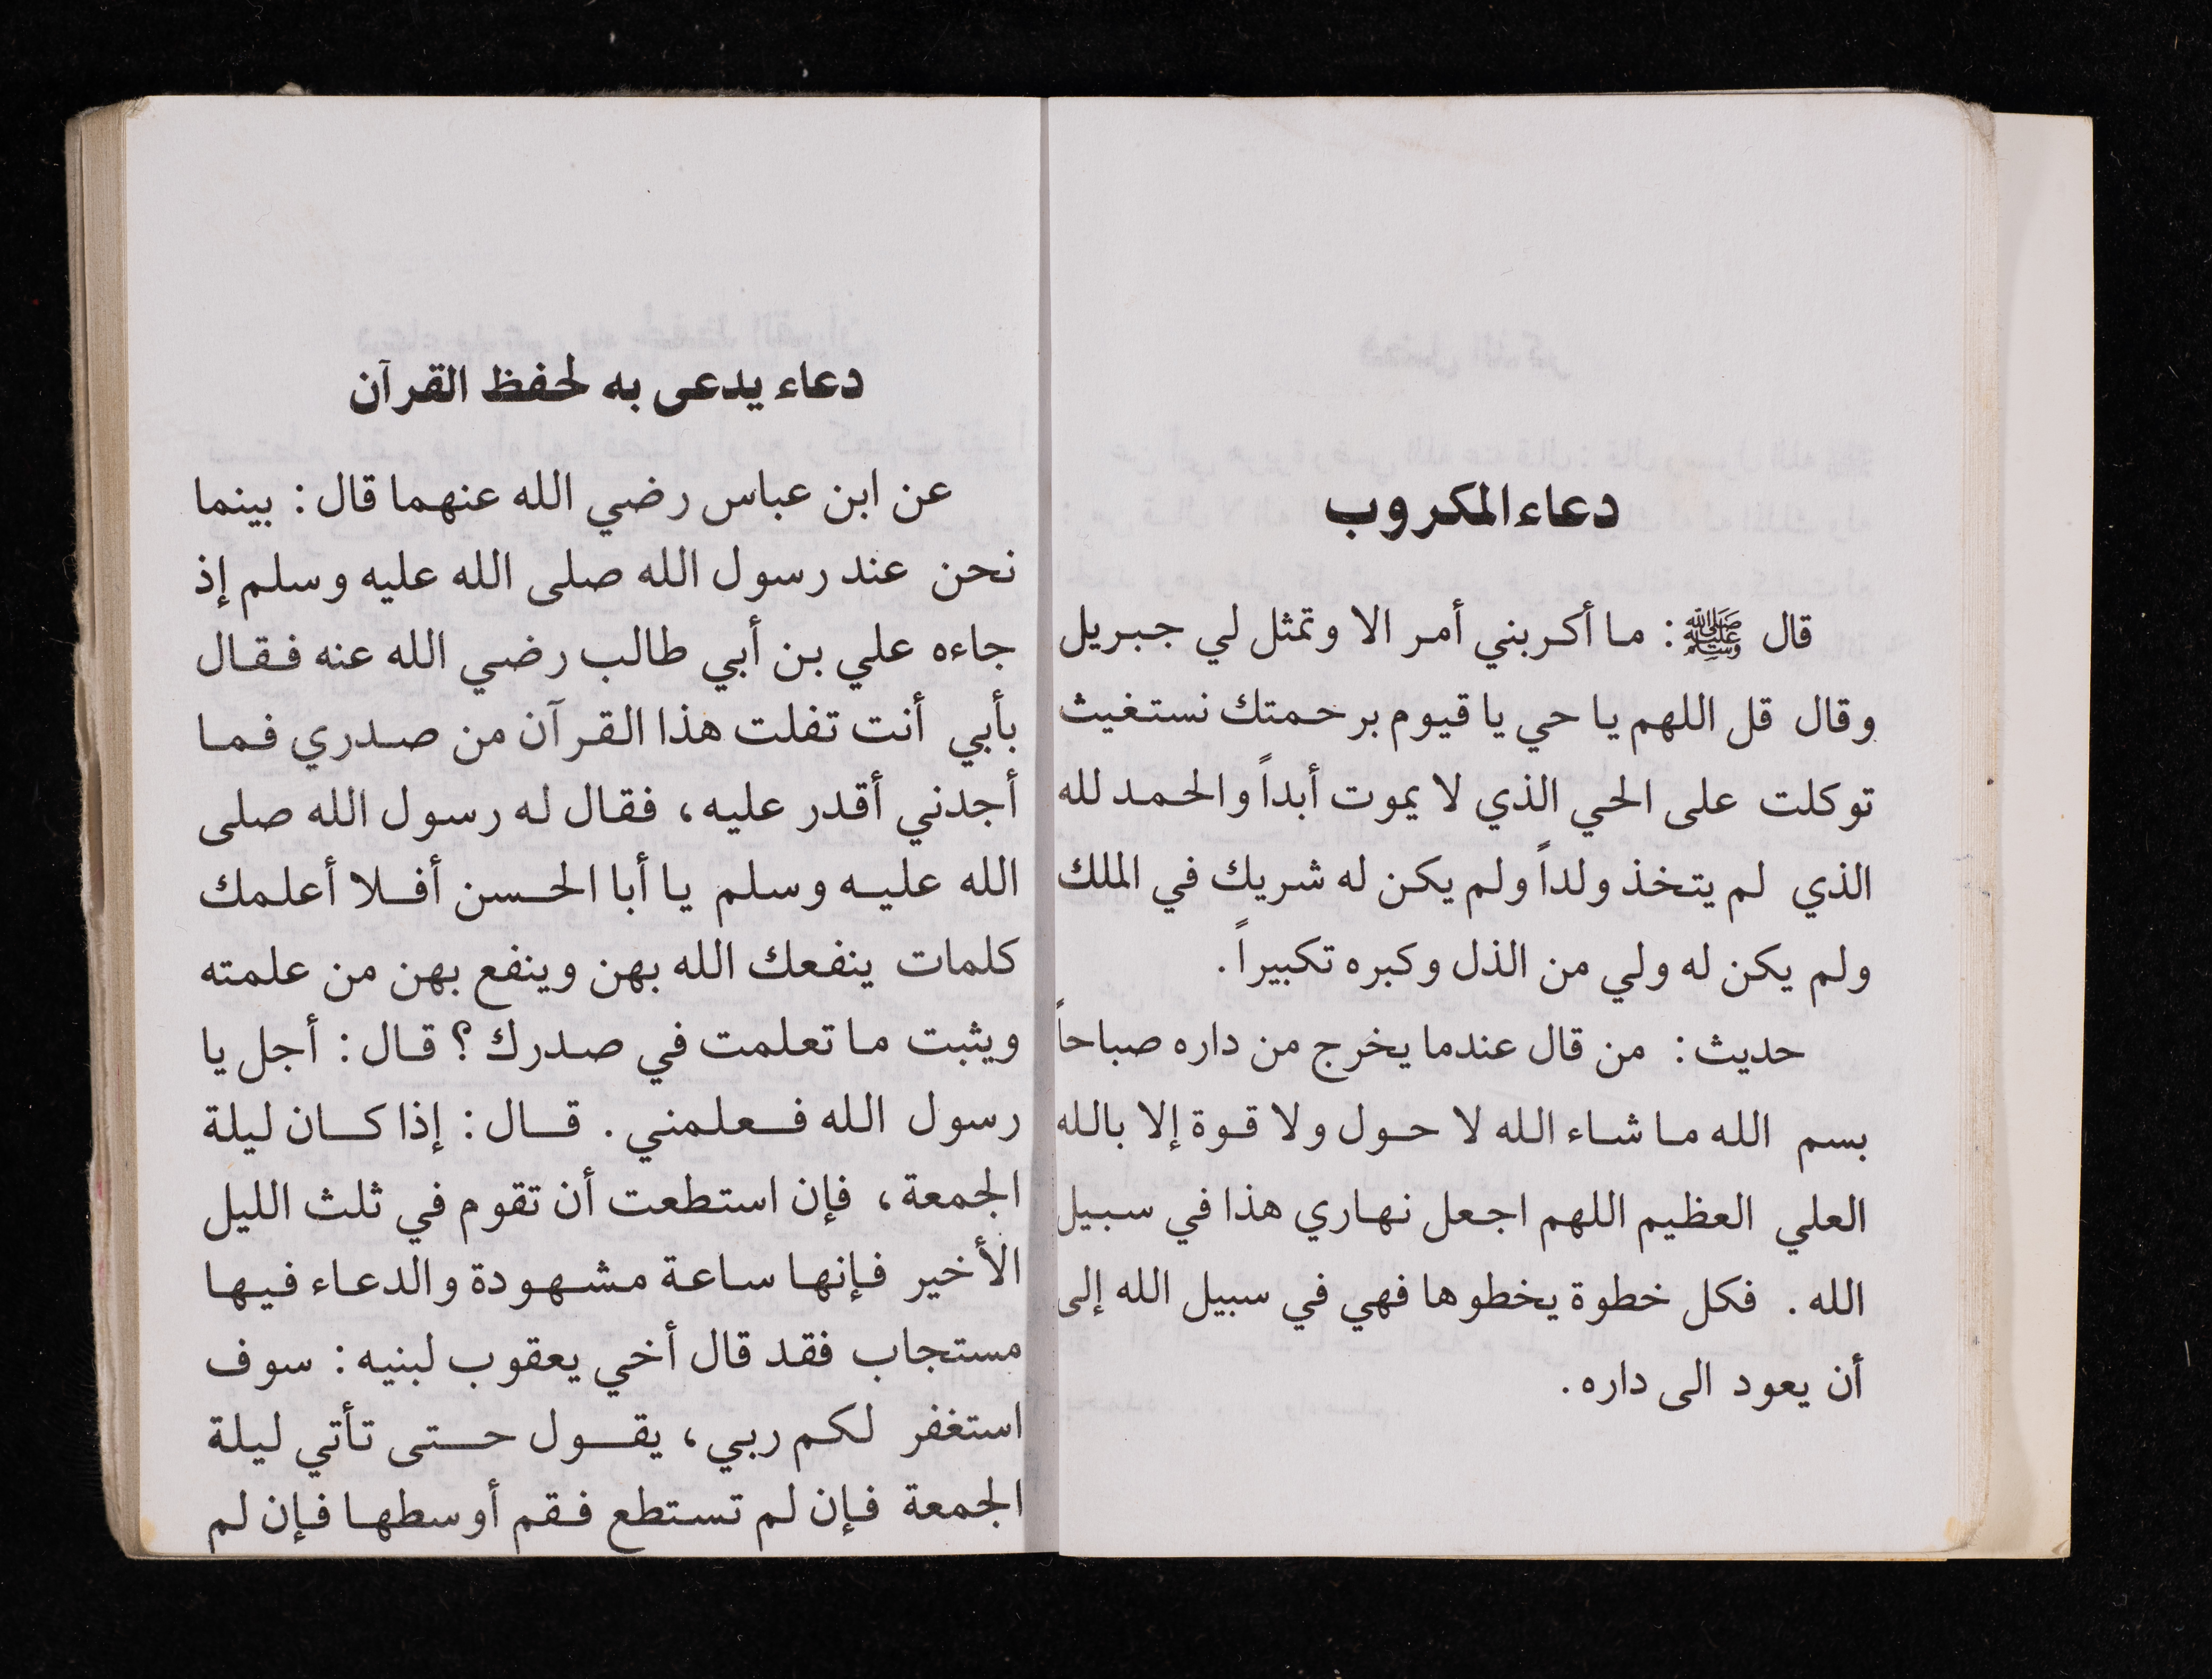 دعاء المكروب
قال ﷺ: ما أكربني أمر الا وتمثل لي جبريل
وقال قل اللهم يا حي يا قيوم برحمتك نستغيث
توكلت على الحي الذي لا يموت أبداً والحمد لله
الذي لم يتخذ ولداً ولم يكن له شريك في الملك
ولم يكن له ولي من الذل وكبره تكبيراً.
حديث: من قال عندما يخرج من داره صباحاً
بسم الله ما شاء الله لا حول ولا قوة إلا بالله
العلي العظيم اللهم اجعل نهاري هذا في سبيل
الله. فكل خطوة يخطوها فهي في سبيل الله إلى
أن يعود الى داره.
دعاء يدعى به لحفظ القرآن
عن ابن عباس رضي الله عنهما قال: بينما
نحن عند رسول الله صلى الله عليه وسلم إذ
جاءه علي بن أبي طالب رضي الله عنه فقال
بأبي أنت تفلت هذا القرآن من صدري فما
أجدني أقدر عليه، فقال له رسول الله صلى
الله عليه وسلم يا أبا الحسن أفلا أعلمك
كلمات ينفعك الله بهن وينفع بهن من علمته
ويثبت ما تعلمت في صدرك؟ قال: أجل يا
رسول الله فعلمني. قال: إذا كان ليلة
الجمعة، فإن استطعت أن تقوم في ثلث الليل
الأخير فإنها ساعة مشهودة والدعاء فيها
مستجاب فقد قال أخي يعقوب لبنيه: سوف
استغفر لكم ربي، يقول حتى تأتي ليلة
الجمعة فإن لم تستطع فقم أوسطها فإن لم